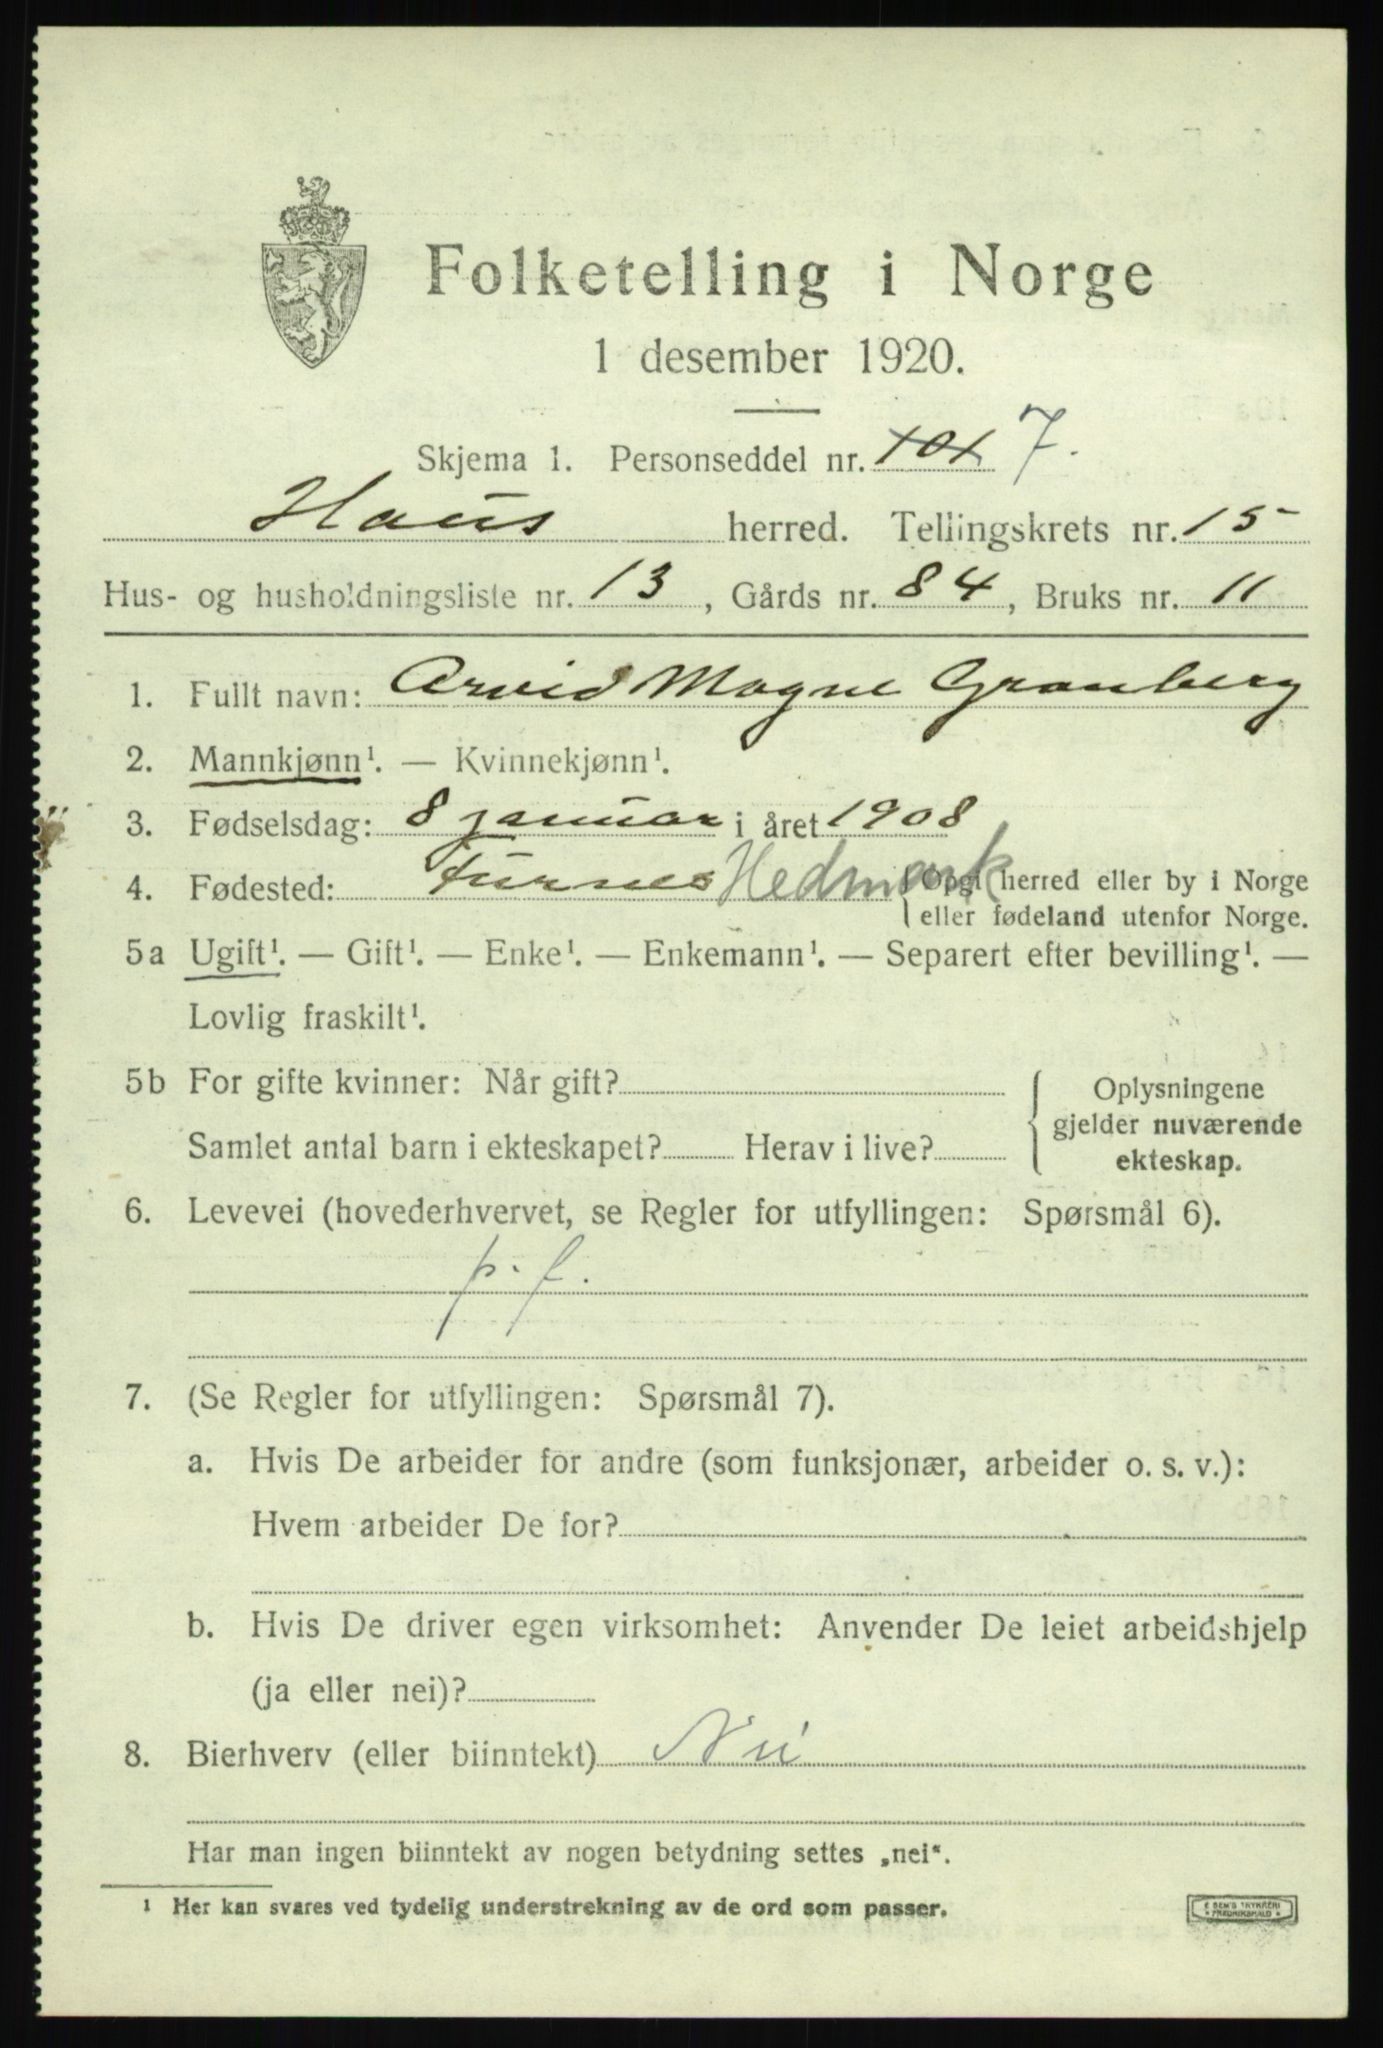 Folketelling i Norge
1 desember 1920.
Skjema 1. Personseddel nr. 101 7.
Haus herred. Tellingskrets nr. 15
Hus- og husholdningsliste nr. 13, Gårds nr. 84, Bruks nr. 11
1. Fullt navn: Arvid Magne Granberg
2. Mannkjønn¹. — Kvinnekjønn¹.
3. Fødselsdag: 8 januar i året 1908
4. Fødested: Furnes Hedmark {Opgi herred eller by i Norge
eller fødeland utenfor Norge.
5a Ugift¹. — Gift¹. — Enke¹. — Enkemann¹. — Separert efter bevilling¹. —
Lovlig fraskilt¹.
5b For gifte kvinner: Når gift?
Oplysningene
gjelder nuværende
ekteskap.
Samlet antal barn i ekteskapet? Herav i live?
6. Levevei (hovederhvervet, se Regler for utfyllingen: Spørsmål 6).
p. f.
7. (Se Regler for utfyllingen: Spørsmål 7).
a. Hvis De arbeider for andre (som funksjonær, arbeider o. s. v.):
Hvem arbeider De for?
b. Hvis De driver egen virksomhet: Anvender De leiet arbeidshjelp
(ja eller nei)?
8. Bierhverv (eller biinntekt) Nei
Har man ingen biinntekt av nogen betydning settes „nei“.
¹ Her kan svares ved tydelig understrekning av de ord som passer.